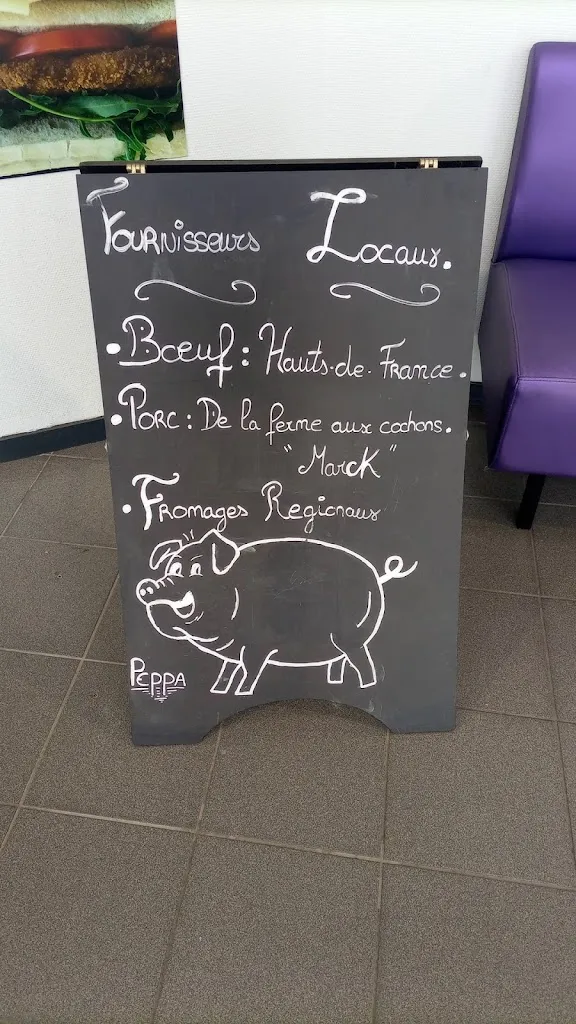 Fournisseurs Locaux.
• Bœuf : Hauts-de-France.
• Porc : De la ferme aux cochons.
"Marck"
• Fromages Regionaux
Peppa